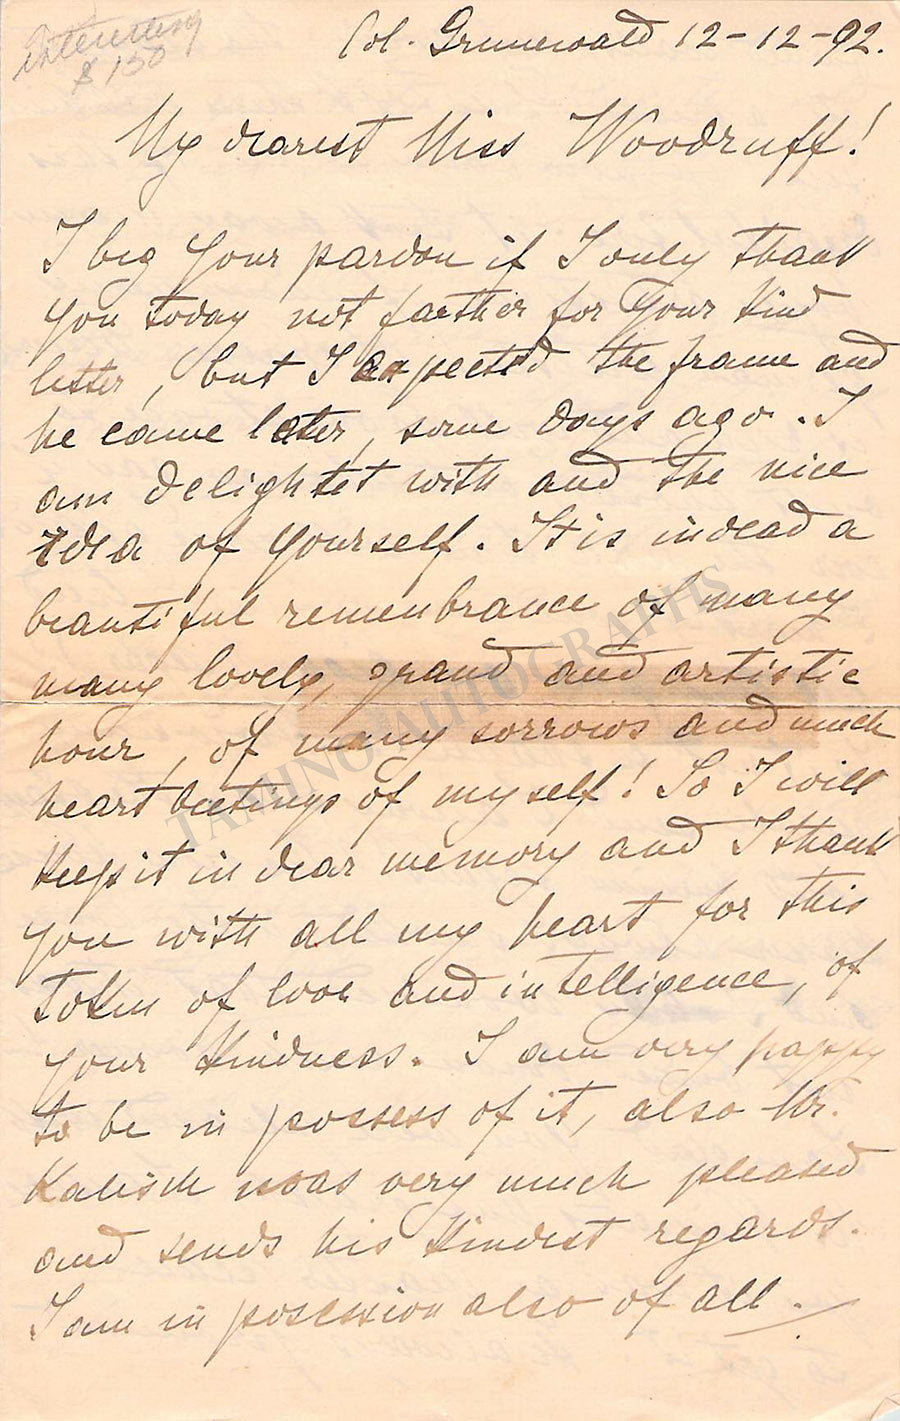 interesting
$150
Col. Grunewald 12-12-92.
My dearest Miss Woodruff!
I beg your pardon if I only thank
you today not farther for your kind
letter, but I expected the frame and
he came later, some days ago. I
am delightet with and the nice
idea of yourself. It is indead a
beautiful remembrance of many
many lovely, grand and artistic
hour, of many sorrows and much
heart beetings of myself! So I will
keep it in dear memory and I thank
you with all my heart for this
token of love and intelligence, of
your kindness. I am very happy
to be in possess of it, also Mr.
Kalisch was very much pleased
and sends his kindest regards.
I am in posession also of all.
TAMINO AUTOGRAPHS